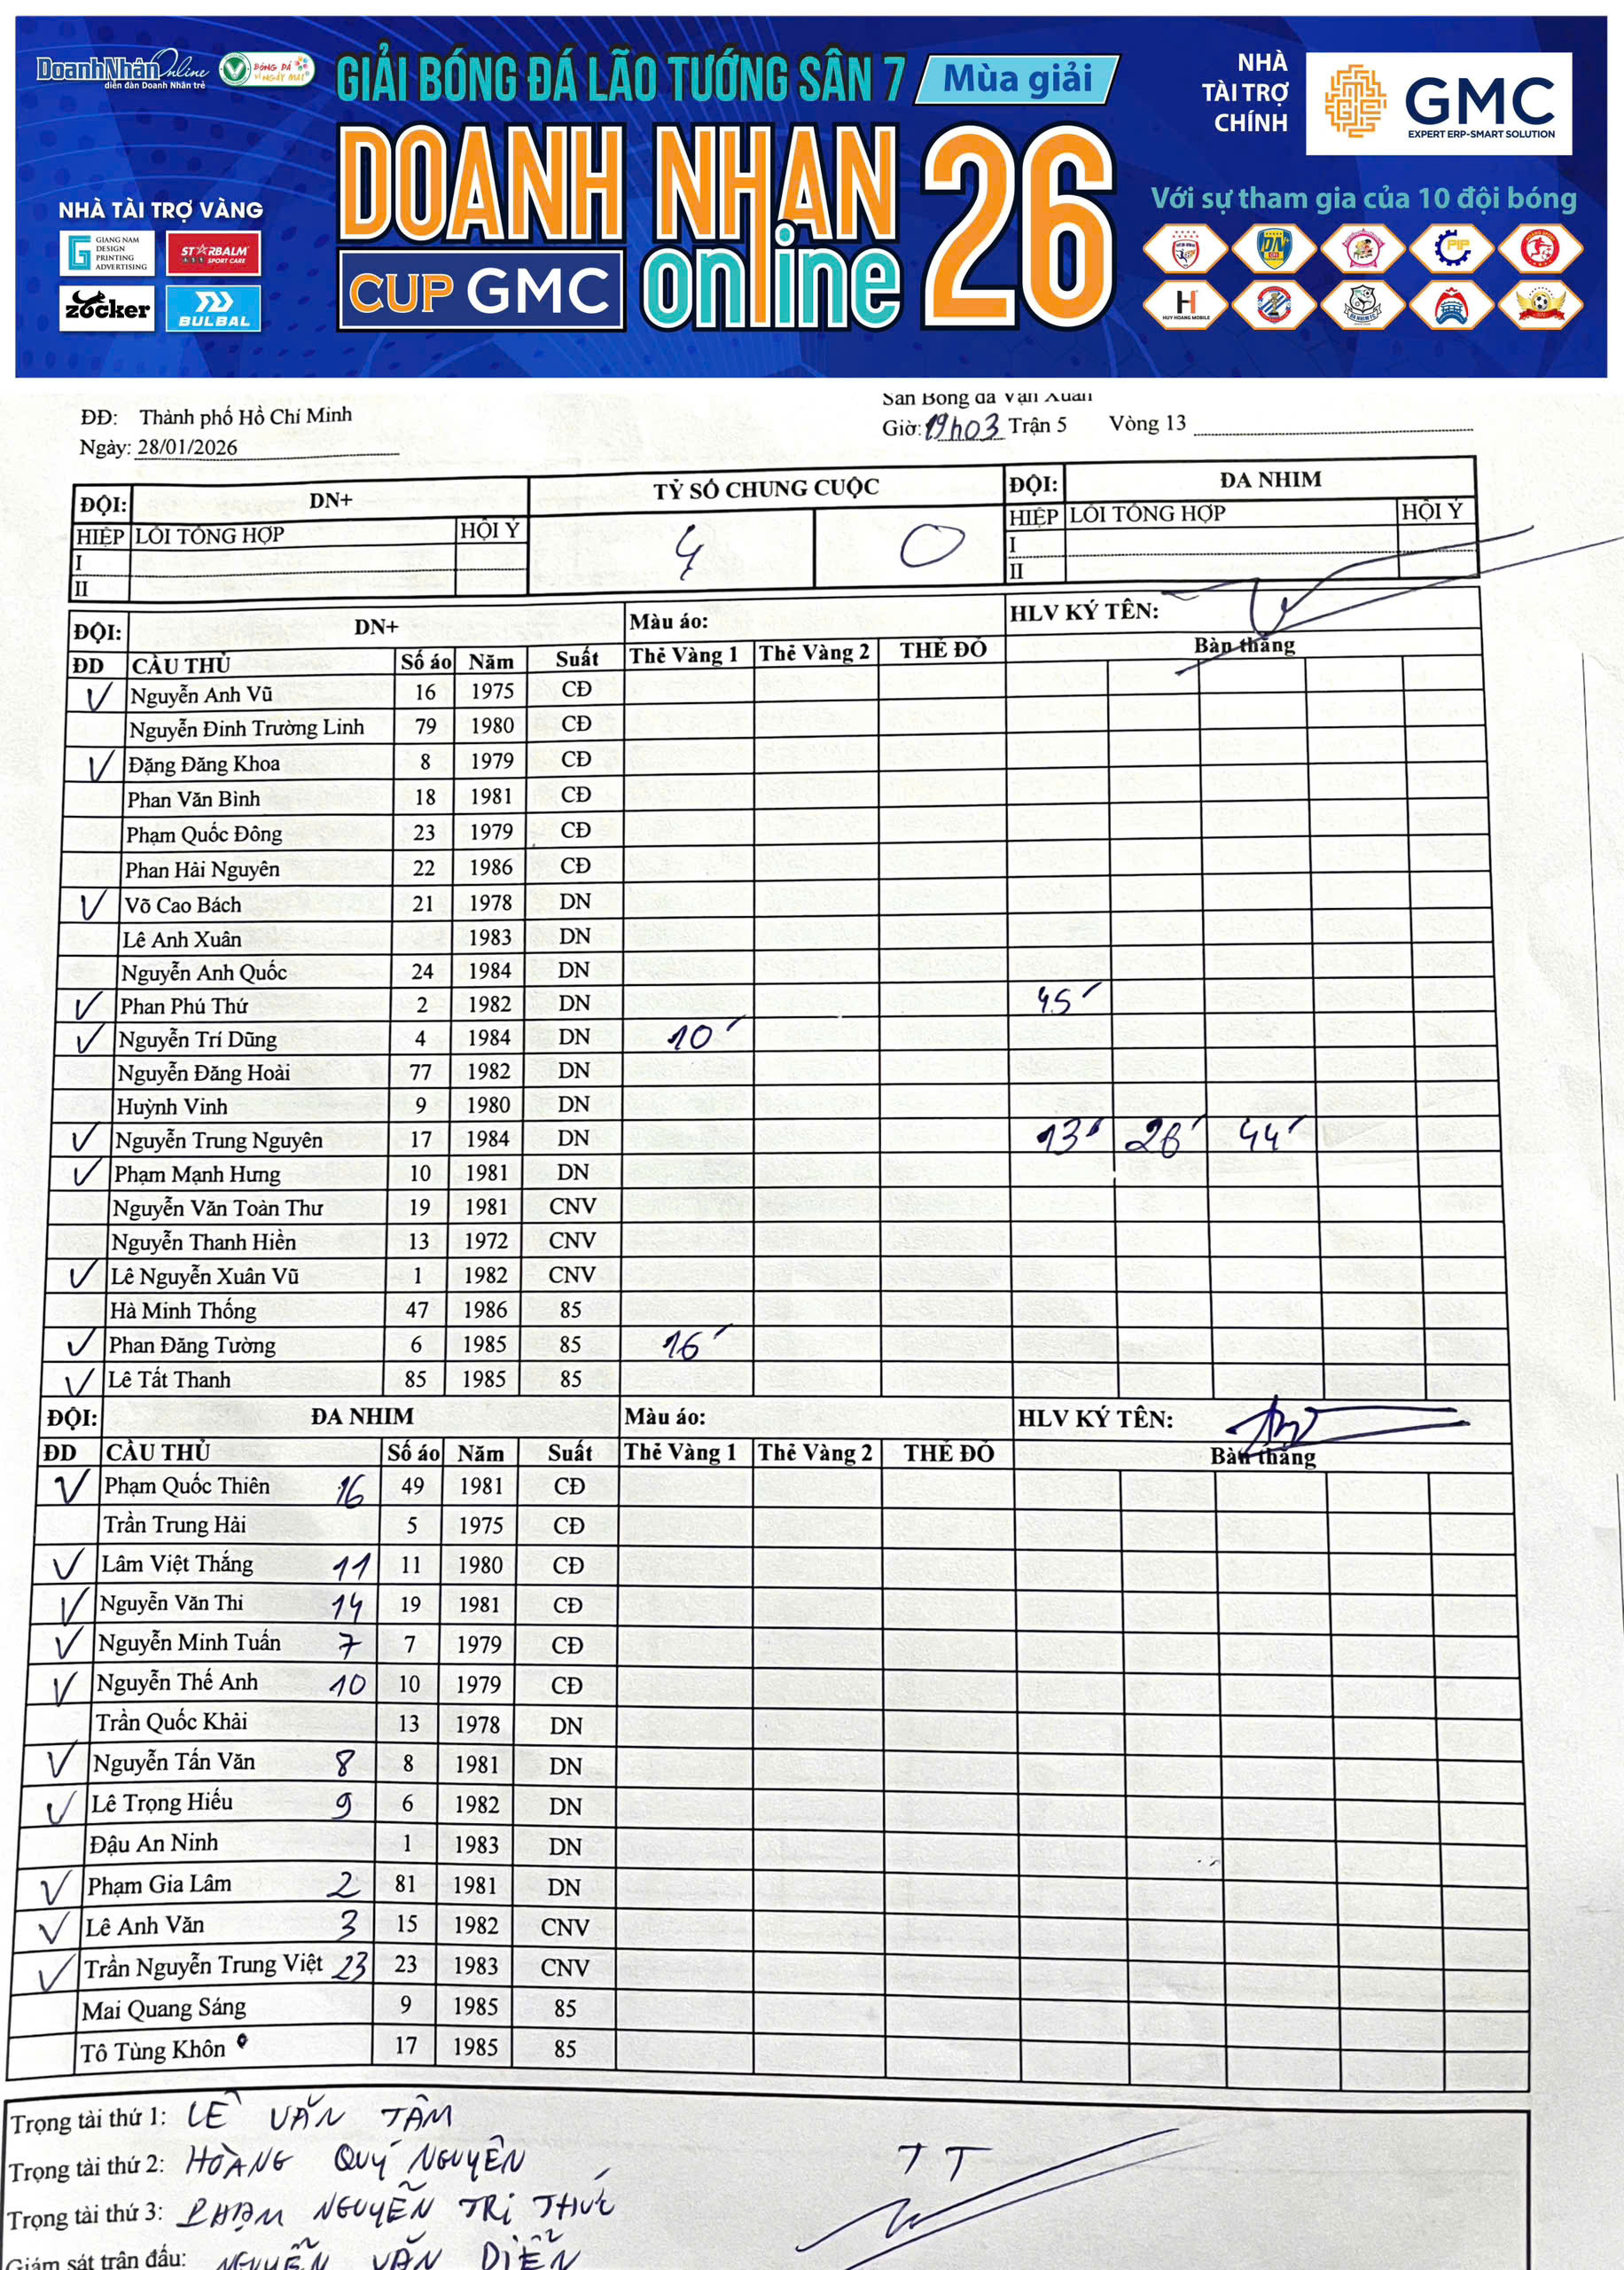 DoanhNhân Online
diễn đàn Doanh Nhân trẻ
BÓNG ĐÁ
VÌ NGÀY MAI
GIẢI BÓNG ĐÁ LÃO TƯỚNG SÂN 7 Mùa giải
DOANH NHAN 26
CUP GMC online
NHÀ
TÀI TRỢ
CHÍNH
GMC
EXPERT ERP-SMART SOLUTION
NHÀ TÀI TRỢ VÀNG
GIANG NAM
DESIGN
PRINTING
ADVERTISING
STARBALM
SPORT CARE
zocker
BULBAL
Với sự tham gia của 10 đội bóng
DN
PIP
H
HUY HOANG MOBILE
ĐĐ: Thành phố Hồ Chí Minh
Sân Bóng đá Vạn Xuân
Ngày: 28/01/2026
Giờ: 19h03 Trận 5 Vòng 13
ĐỘI: DN+ TỶ SỐ CHUNG CUỘC ĐỘI: ĐA NHIM
HIỆP LỖI TỔNG HỢP HỘI Ý 4 0 HIỆP LỖI TỔNG HỢP HỘI Ý
I I
II II
ĐỘI: DN+ Màu áo: HLV KÝ TÊN:
ĐD CẦU THỦ Số áo Năm Suất Thẻ Vàng 1 Thẻ Vàng 2 THẺ ĐỎ Bàn thắng
Nguyễn Anh Vũ 16 1975 CĐ
Nguyễn Đinh Trường Linh 79 1980 CĐ
Đặng Đăng Khoa 8 1979 CĐ
Phan Văn Bình 18 1981 CĐ
Phạm Quốc Đông 23 1979 CĐ
Phan Hải Nguyên 22 1986 CĐ
Võ Cao Bách 21 1978 DN
Lê Anh Xuân 1983 DN
Nguyễn Anh Quốc 24 1984 DN
Phan Phú Thứ 2 1982 DN 45'
Nguyễn Trí Dũng 4 1984 DN 10'
Nguyễn Đăng Hoài 77 1982 DN
Huỳnh Vinh 9 1980 DN
Nguyễn Trung Nguyên 17 1984 DN 13' 26' 44'
Phạm Mạnh Hưng 10 1981 DN
Nguyễn Văn Toàn Thư 19 1981 CNV
Nguyễn Thanh Hiền 13 1972 CNV
Lê Nguyễn Xuân Vũ 1 1982 CNV
Hà Minh Thống 47 1986 85
Phan Đăng Tường 6 1985 85 16'
Lê Tất Thanh 85 1985 85
ĐỘI: ĐA NHIM Màu áo: HLV KÝ TÊN:
ĐD CẦU THỦ Số áo Năm Suất Thẻ Vàng 1 Thẻ Vàng 2 THẺ ĐỎ Bàn thắng
Phạm Quốc Thiên 16 49 1981 CĐ
Trần Trung Hải 5 1975 CĐ
Lâm Việt Thắng 11 11 1980 CĐ
Nguyễn Văn Thi 14 19 1981 CĐ
Nguyễn Minh Tuấn 7 7 1979 CĐ
Nguyễn Thế Anh 10 10 1979 CĐ
Trần Quốc Khải 13 1978 DN
Nguyễn Tấn Văn 8 8 1981 DN
Lê Trọng Hiếu 9 6 1982 DN
Đậu An Ninh 1 1983 DN
Phạm Gia Lâm 2 81 1981 DN
Lê Anh Văn 3 15 1982 CNV
Trần Nguyễn Trung Việt 23 23 1983 CNV
Mai Quang Sáng 9 1985 85
Tô Tùng Khôn 17 1985 85
Trọng tài thứ 1: LÊ VĂN TÂM
Trọng tài thứ 2: HOÀNG QUÝ NGUYÊN
TT
Trọng tài thứ 3: PHẠM NGUYỄN TRI THỨC
Giám sát trận đấu: NGUYỄN VĂN DIỄN